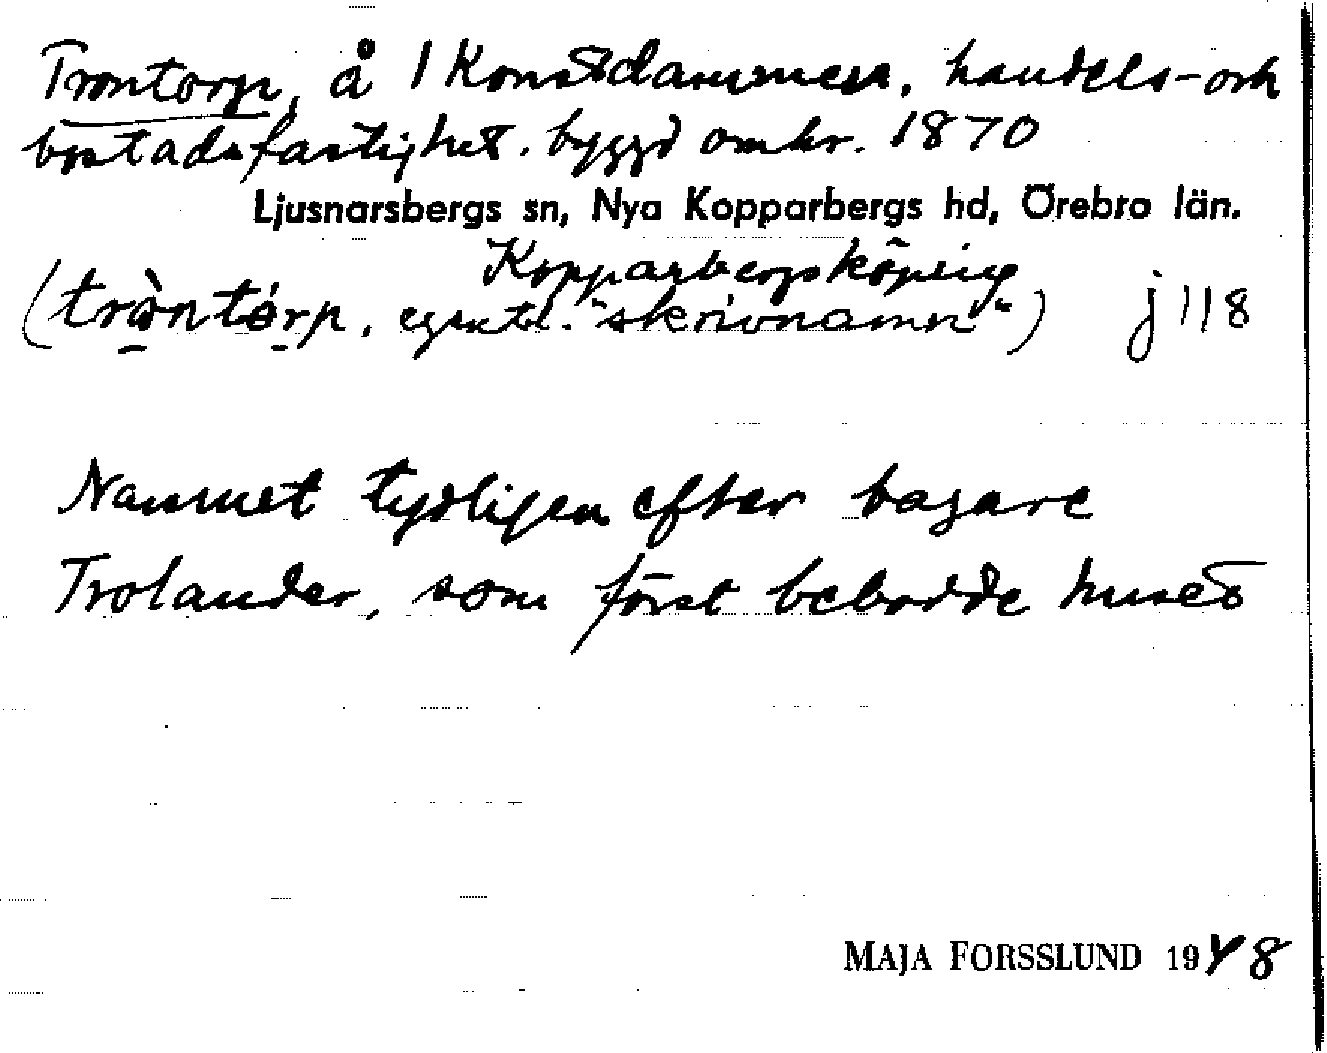 Trontorp, å 1 Konstdammen, handels- och
bostadsfastighet. byggd omkr. 1870
Ljusnarsbergs sn, Nya Kopparbergs hd, Örebro län.
Kopparbergs köping
(tròntórp, egentl. "skrivnamn") j 118
Namnet tydligen efter bagare
Trolander, som först bebodde huset
MAJA FORSSLUND 1948